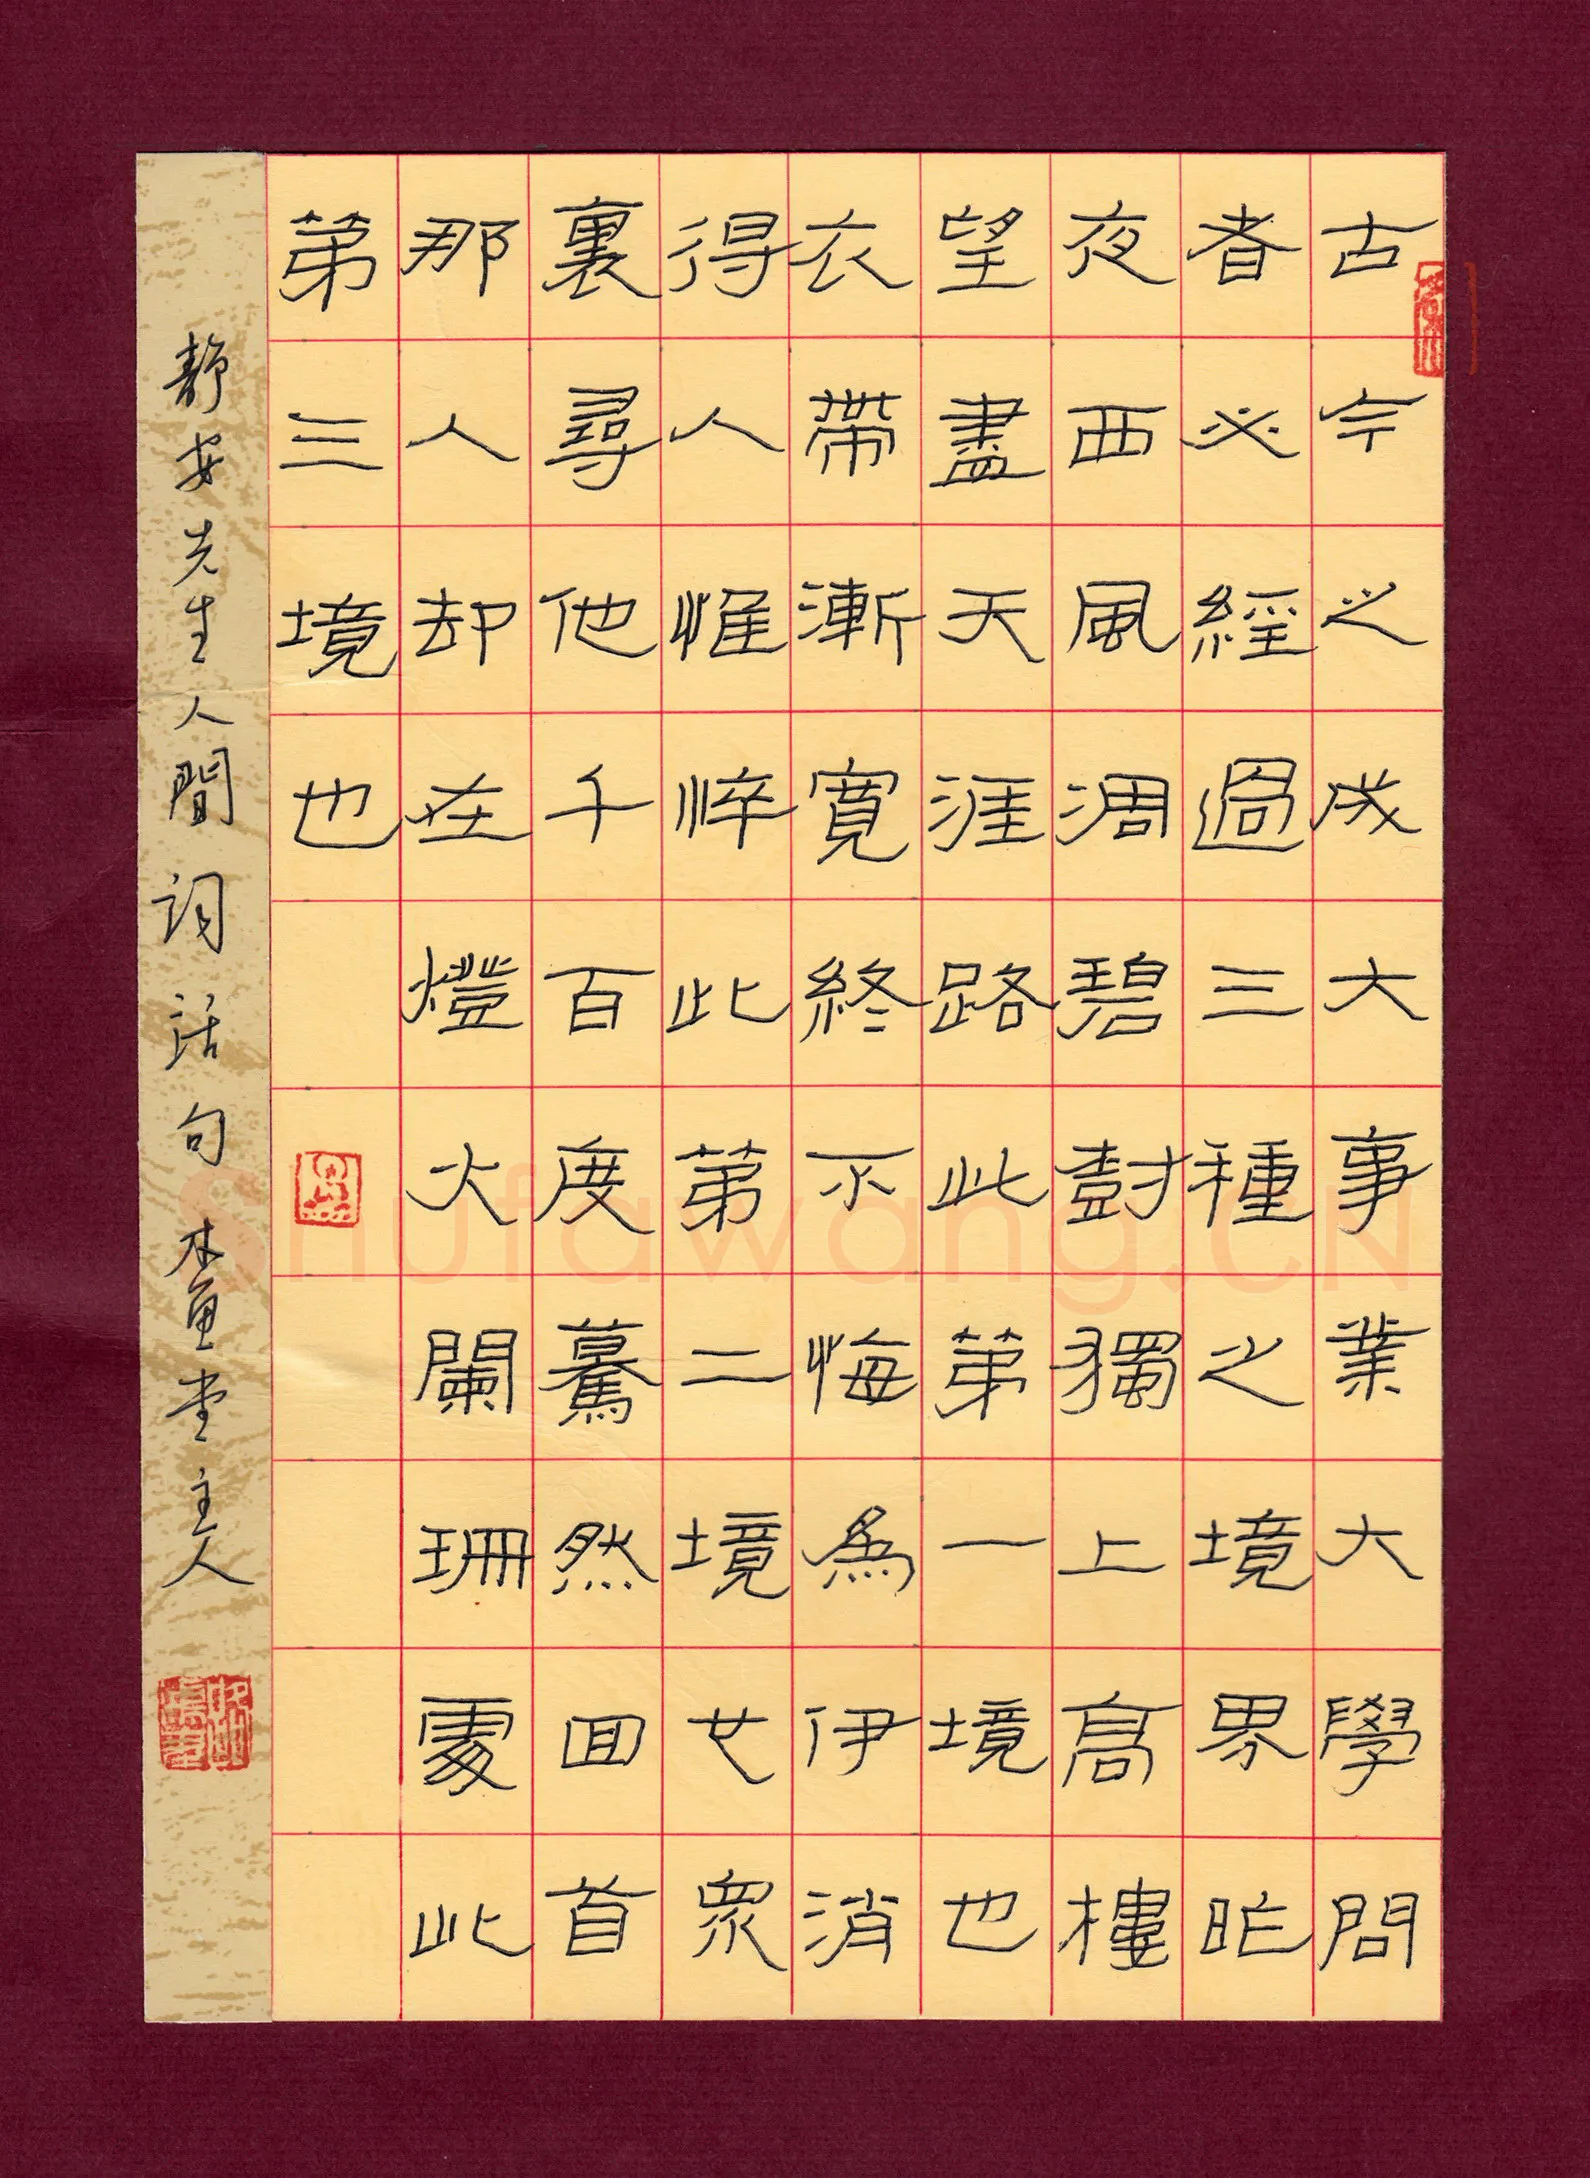 古今之成大事業大學問
者必經過三種之境界昨
夜西風凋碧尌獨上高樓
望盡天涯路此第一境也
衣帶漸寬終不悔為伊消
得人惟悴此第二境也眾
裏尋他千百度驀然回首
那人却在燈火闌珊處此
第三境也
靜安先生人間词话句 木魚堂主人
Shufawang.CN